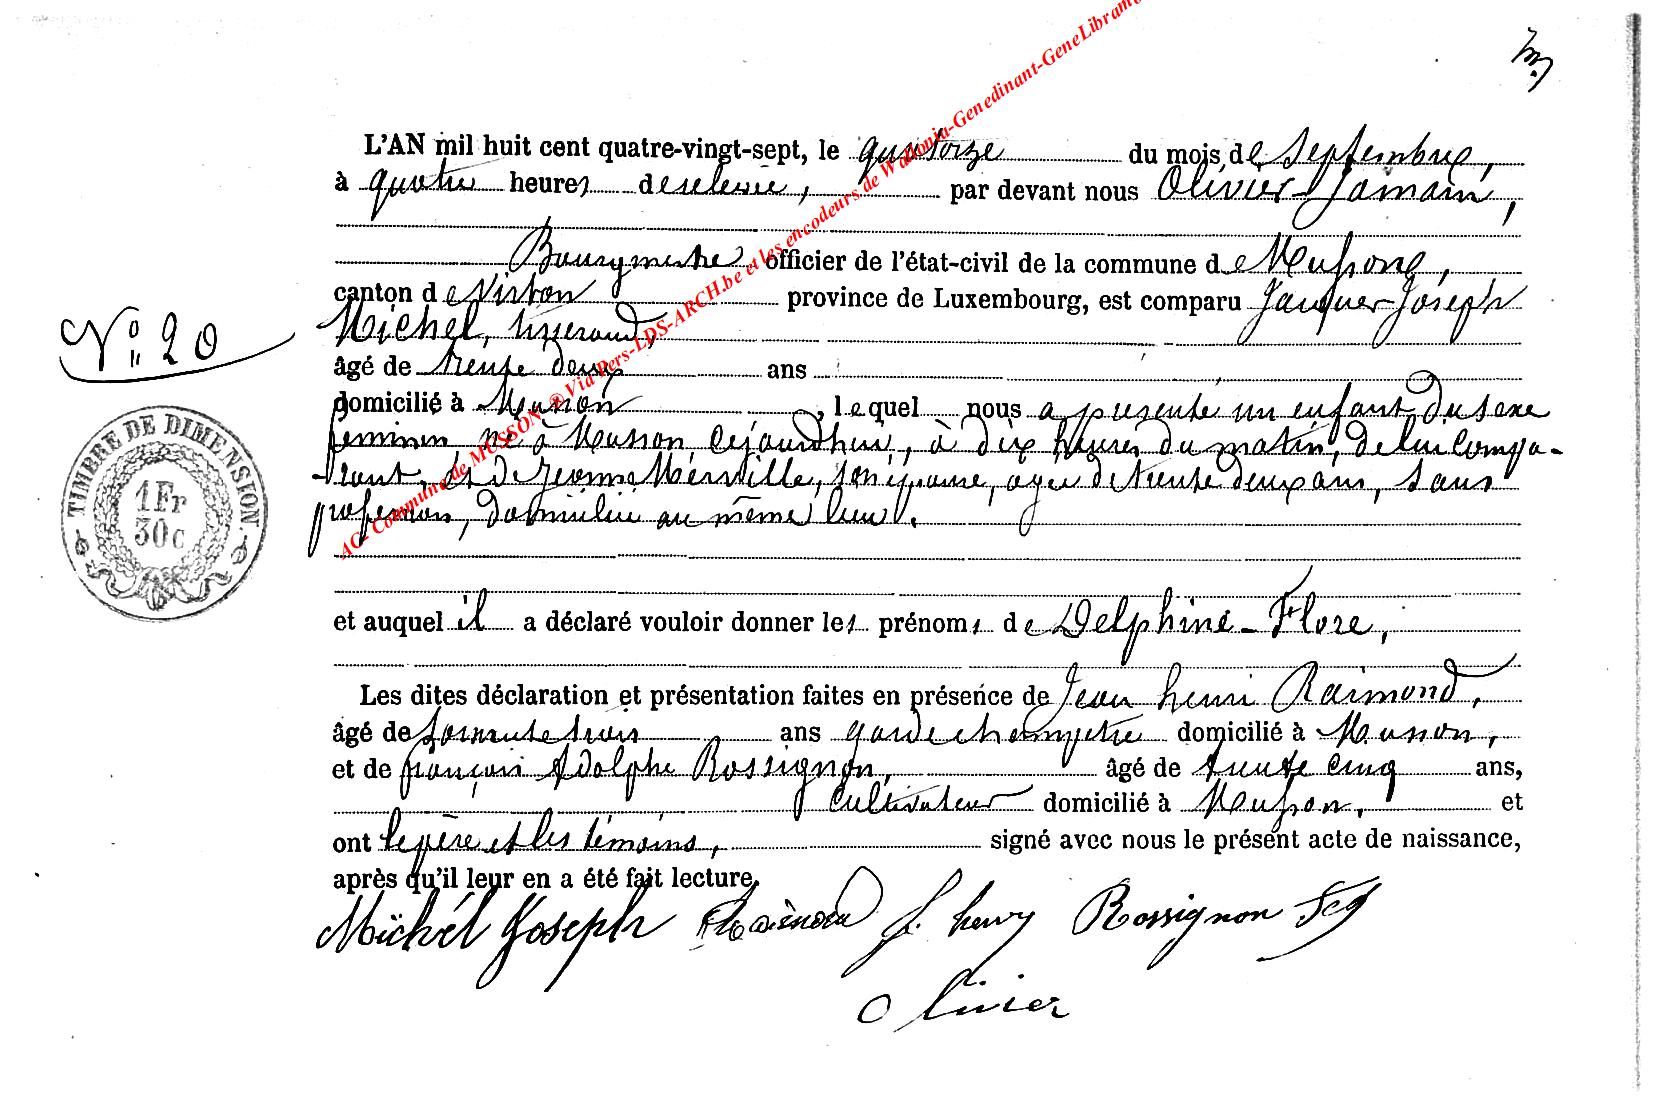 L'AN mil huit cent quatre-vingt-sept, le quatorze du mois de Septembre,
à quatre heures de relevée, par devant nous Olivier Jamain,
Bourgmestre officier de l'état-civil de la commune de Musson,
canton de Virton province de Luxembourg, est comparu Jacques-Joseph
Michel, tisserand,
N° 20
âgé de trente deux ans
domicilié à Musson, lequel nous a présenté un enfant du sexe
féminin né à Musson, cejourd'hui, à dix heures du matin, de lui compa-
rant, et de Jeanne Merville, son épouse, agée de trente deux ans, sans
profession, domiciliée au même lieu.
TIMBRE DE DIMENSION
1 Fr
30c
et auquel il a déclaré vouloir donner les prénoms de Delphine-Flore,
Les dites déclaration et présentation faites en présence de Jean henri Raimond,
âgé de soixante trois ans garde champêtre domicilié à Musson,
et de françois Adolphe Rossignon, âgé de trente cinq ans,
cultivateur domicilié à Musson, et
ont le père et les témoins, signé avec nous le présent acte de naissance,
après qu'il leur en a été fait lecture.
Michel Joseph Raimond J. henry Rossignon
Olivier
AC. Commune de MUSSON. ® Via Pers-LDS-ARCH.be et les encodeurs de Wallonia-Genedinant-GeneLibramo